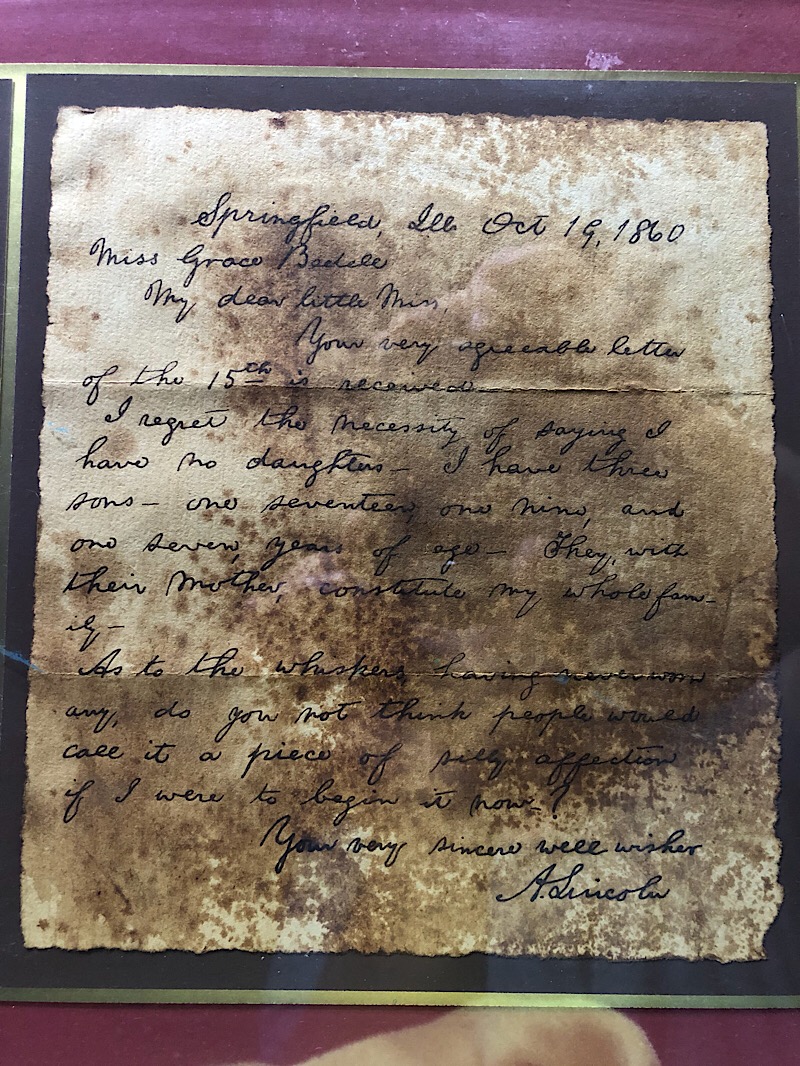 Springfield, Ill. Oct 19, 1860
Miss Grace Bedele
My dear little Miss,
Your very agreeable letter
of the 15th is received
I regret the necessity of saying I
have no daughters – I have three
sons – one seventeen, one nine, and
one seven, years of age – They, with
their Mother, constitute my whole fam-
ily –
As to the whiskers, having never worn
any, do you not think people would
call it a piece of silly affection
if I were to begin it now – ?
Your very sincere well wisher
A. Lincoln